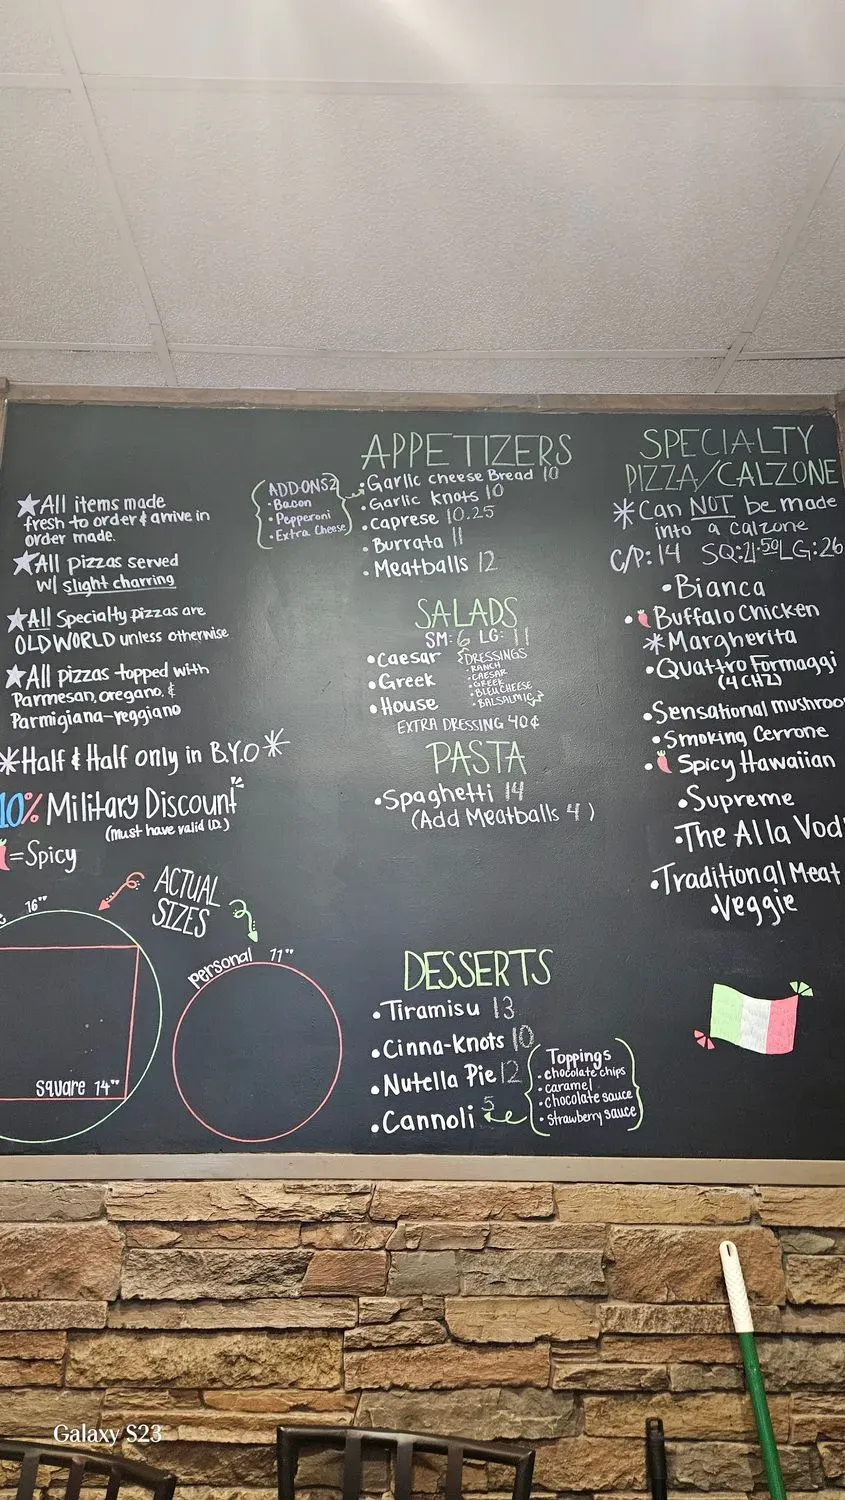 ★All items made
fresh to order & arrive in
order made.
★All pizzas served
w/ slight charring
★All Specialty pizzas are
OLD WORLD unless otherwise
★All pizzas topped with
Parmesan, oregano, &
Parmigiana-reggiano
*Half & Half only in B.Y.O*
10% Military Discount
(Must have valid I.D.)
=Spicy
ACTUAL
SIZES
16"
Square 14"
personal 11"
ADD-ONS 2
• Bacon
• Pepperoni
• Extra Cheese
APPETIZERS
• Garlic cheese Bread 10
• Garlic knots 10
• caprese 10.25
• Burrata 11
• Meatballs 12
SALADS
SM: 6 LG: 11
• Caesar
• Greek
• House
DRESSINGS
• RANCH
• CAESAR
• GREEK
• BLEU CHEESE
• BALSALMIC
EXTRA DRESSING 40¢
PASTA
• Spaghetti 14
(Add Meatballs 4)
DESSERTS
• Tiramisu 13
• Cinna-Knots 10
• Nutella Pie 12
• Cannoli 5
Toppings
• chocolate chips
• caramel
• chocolate sauce
• strawberry sauce
SPECIALTY
PIZZA/CALZONE
*Can NOT be made
into a calzone
C/P: 14 SQ: 21.50 LG: 26
• Bianca
• Buffalo Chicken
*Margherita
• Quattro Formaggi
(4 CHZ)
• Sensational mushroo
• Smoking Cerrone
• Spicy Hawaiian
• Supreme
• The Alla Vod
• Traditional Meat
• Veggie
Galaxy S23